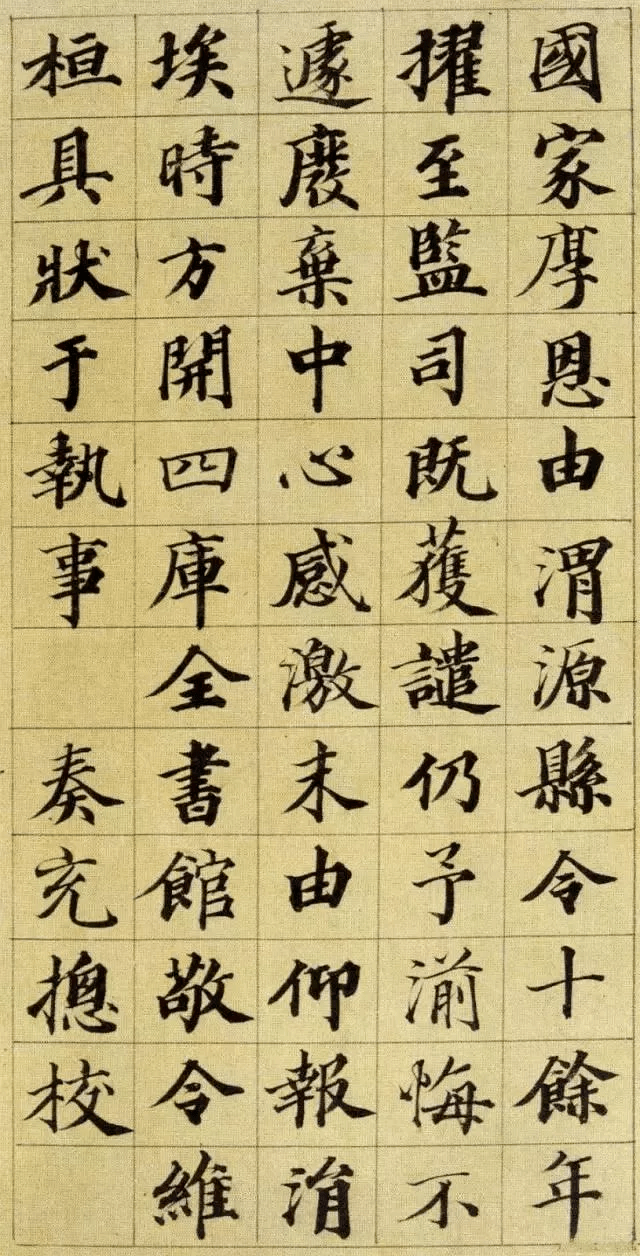 國家厚恩由渭源縣令十餘年
擢至監司既獲譴仍予湔悔不
遽廢棄中心感激末由仰報涓
埃時方開四庫全書館敬令維
桓具狀于執事奏充摠校